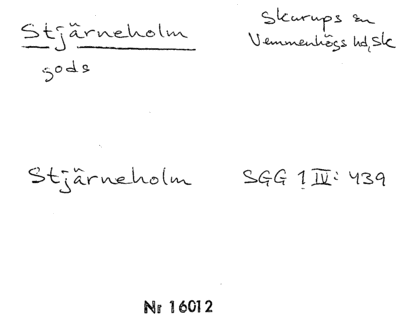 Stjärneholm
gods
Skurups sn
Vemmenhögs hd, Sk
Stjärneholm
SGG 1 IV: 439
Nr 16012